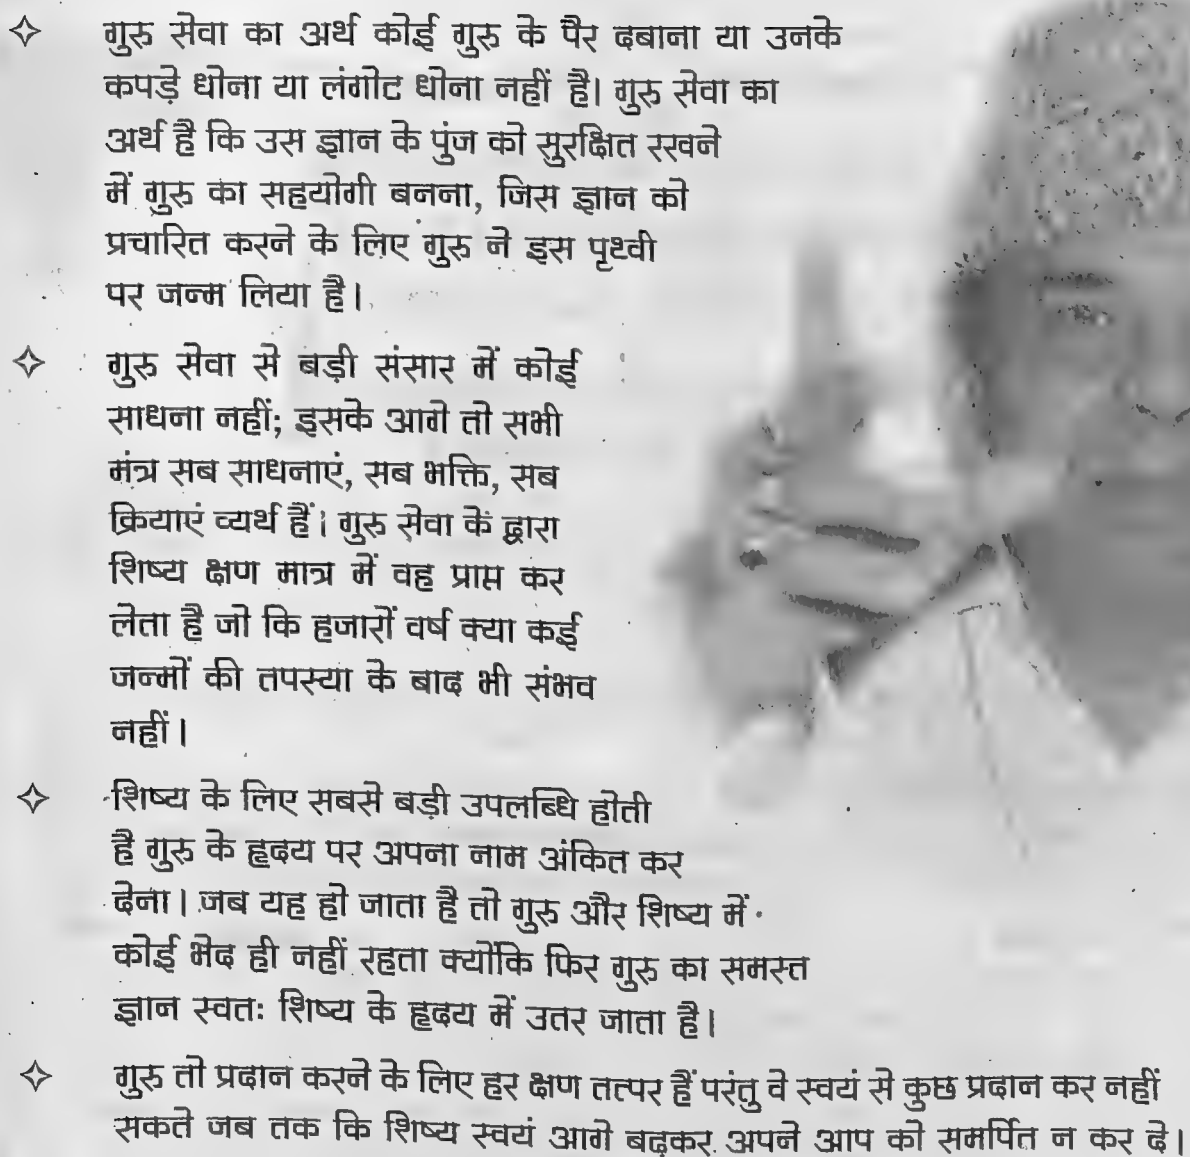 गुरु सेवा का अर्थ कोई गुरु के पैर दबाना या उनके
कपड़े धोना या लंगोट धोना नहीं है। गुरु सेवा का
अर्थ है कि उस ज्ञान के पुंज को सुरक्षित रखने
में गुरु का सहयोगी बनना, जिस ज्ञान को
प्रचारित करने के लिए गुरु ने इस पृथ्वी
पर जन्म लिया है।
गुरु सेवा से बड़ी संसार में कोई
साधना नहीं; इसके आगे तो सभी
मंत्र सब साधनाएं, सब भक्ति, सब
क्रियाएं व्यर्थ हैं। गुरु सेवा के द्वारा
शिष्य क्षण मात्र में वह प्राप्त कर
लेता है जो कि हजारों वर्ष क्या कई
जन्मों की तपस्या के बाद भी संभव
नहीं।
शिष्य के लिए सबसे बड़ी उपलब्धि होती
है गुरु के हृदय पर अपना नाम अंकित कर
देना। जब यह हो जाता है तो गुरु और शिष्य में
कोई भेद ही नहीं रहता क्योंकि फिर गुरु का समस्त
ज्ञान स्वतः शिष्य के हृदय में उतर जाता है।
गुरु तो प्रदान करने के लिए हर क्षण तत्पर हैं परंतु वे स्वयं से कुछ प्रदान कर नहीं
सकते जब तक कि शिष्य स्वयं आगे बढ़कर अपने आप को समर्पित न कर दे।